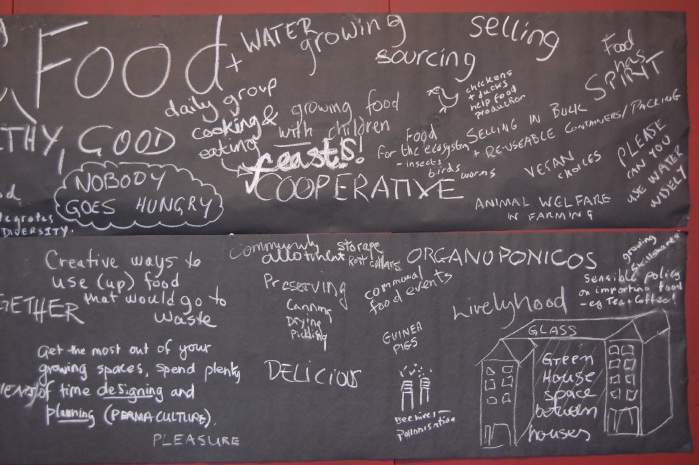 Food
+ WATER
growing
sourcing
selling
Food
has
SPIRIT
THY, GOOD
daily group
cooking &
eating
feasts!
growing food
with children
COOPERATIVE
chickens
+ ducks
help food
production
Food
for the ecosystem
- insects
birds
worms
SELLING IN BULK
+ REUSEABLE CONTAINERS/PACKING
VEGAN
CHOICES
ANIMAL WELFARE
IN FARMING
PLEASE
CAN YOU
USE WATER
WISELY
NOBODY
GOES HUNGRY
tegrates
DIVERSITY.
Creative ways to
use (up) food
that would go to
waste
GETHER
Get the most out of your
growing spaces, spend plenty
of time designing and
planning (PERMACULTURE).
PLEASURE
Community
allotment
storage
Root cellars
Preserving
Canning
Drying
Pickling
DELICIOUS
communal
food events
GUINEA
PIGS
Beehives
Pollinisation
ORGANOPONICOS
Livelyhood
growing
Sensible policy
on importing food
- eg Tea + Coffee!
GLASS
Green
House
space
between
houses